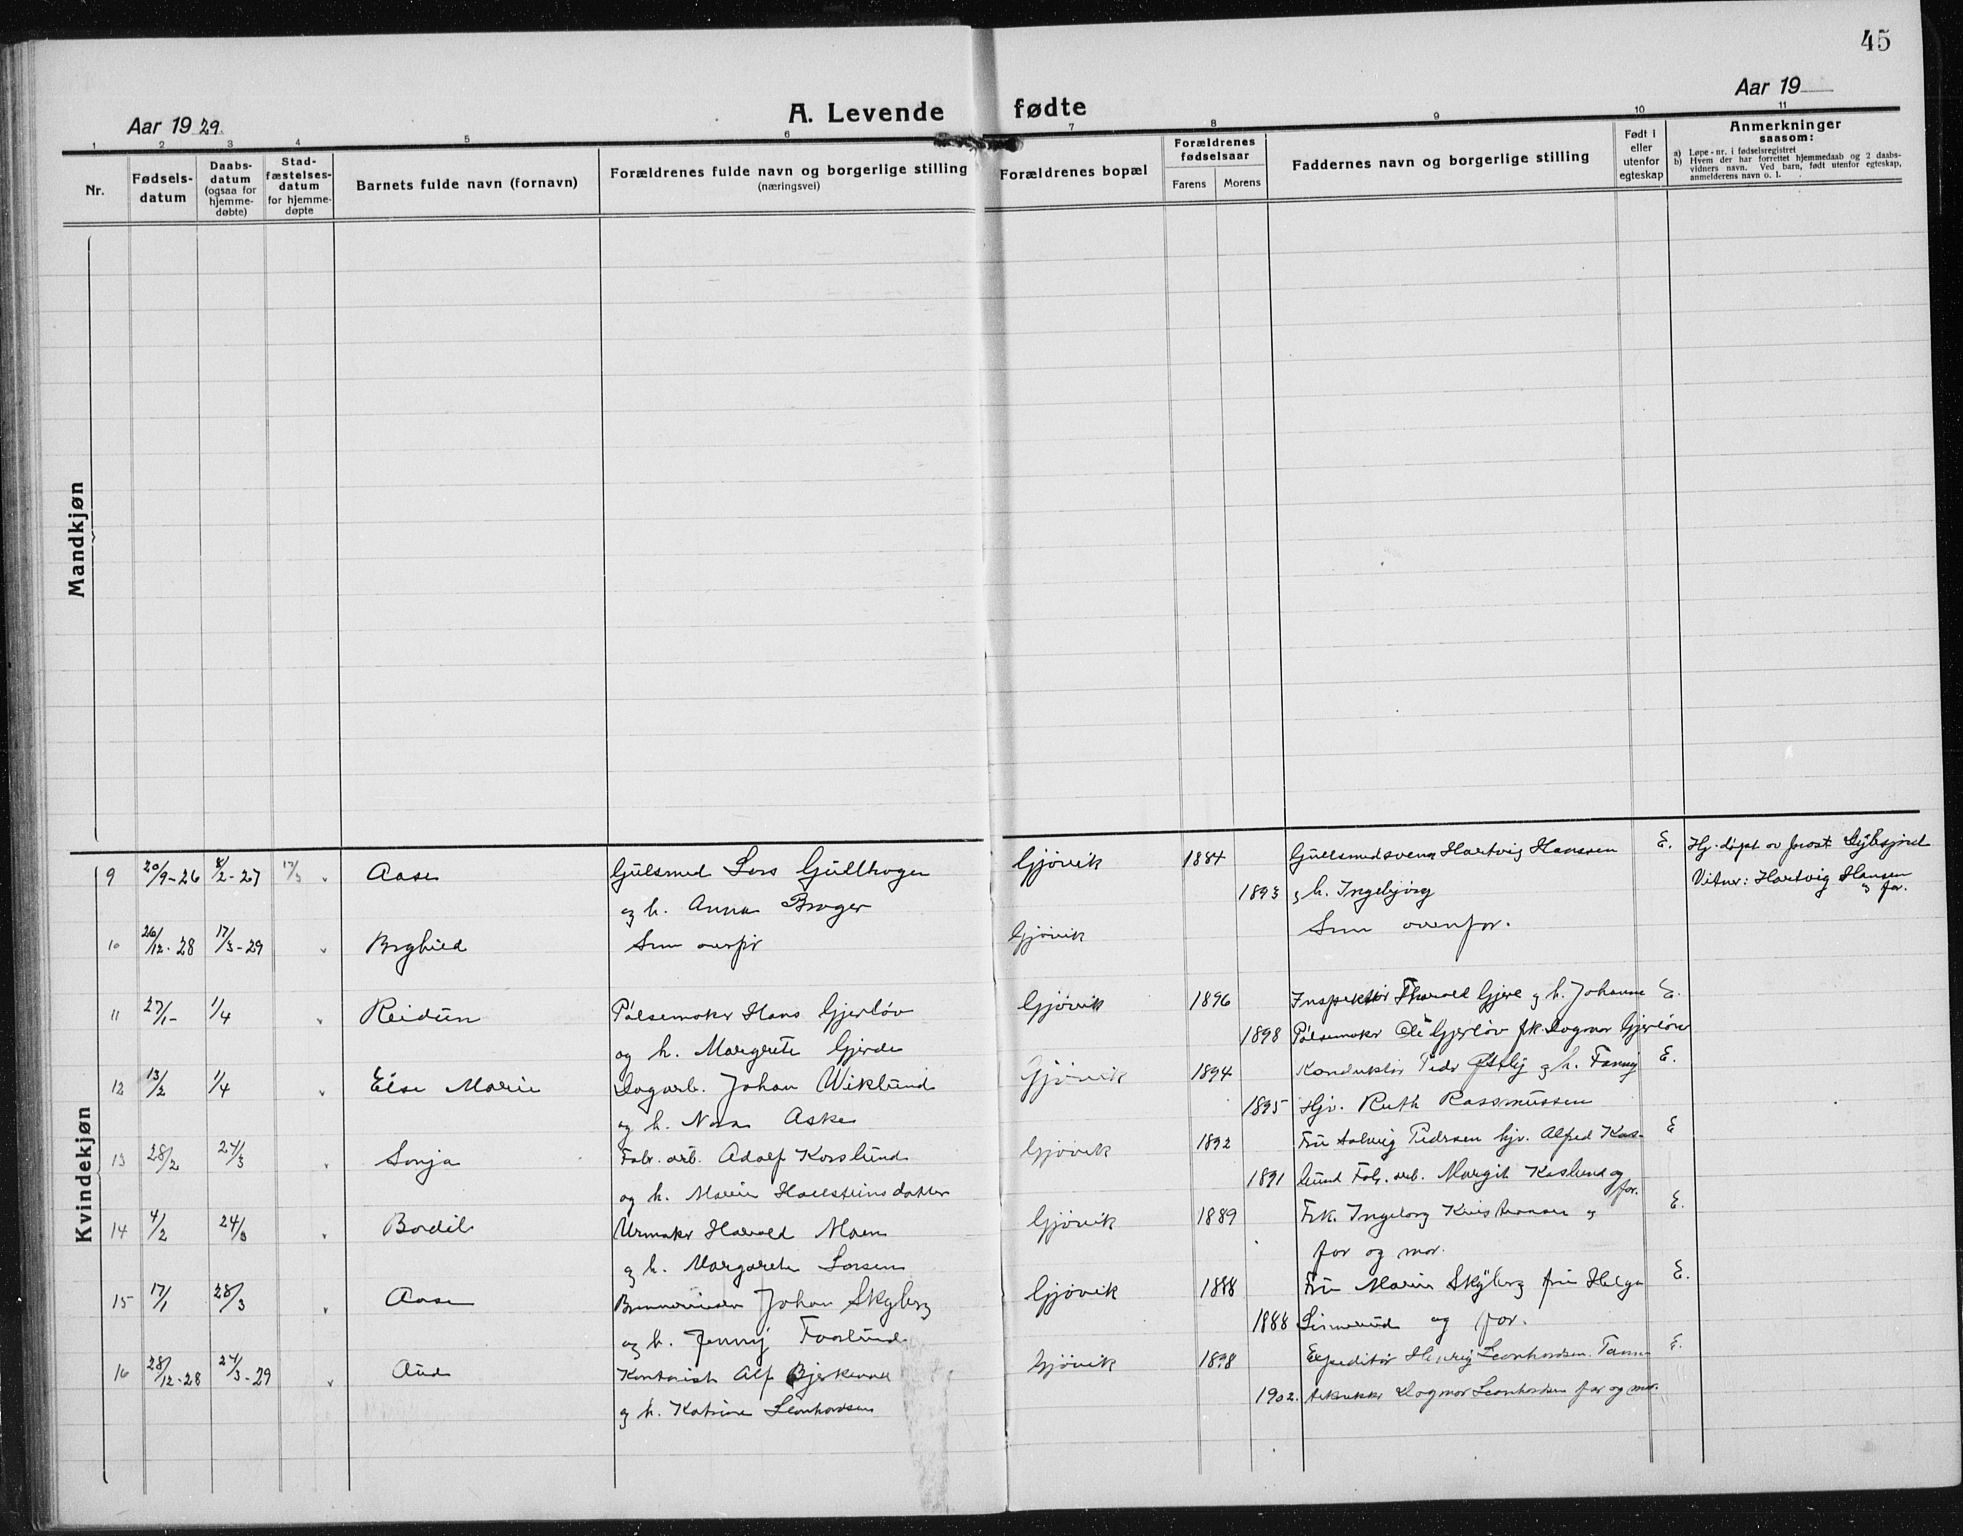 45
Aar 1929.
A. Levende fødte
Aar 19
1 2 3 4 5 6 7 8 9 10 11
Nr.
Fødsels-
datum
Daabs-
datum
(ogsaa for
hjemme-
døbte)
Stad-
fæstelses-
datum
for hjemme-
døpte
Barnets fulde navn (fornavn)
Forældrenes fulde navn og borgerlige stilling
(næringsvei)
Forældrenes bopæl
Forældrenes
fødselsaar
Farens Morens
Faddernes navn og borgerlige stilling
Født i
eller
utenfor
egteskap
Anmerkninger
saasom:
a) Løpe-nr. i fødselsregistret
b) Hvem der har forrettet hjemmedaab og 2 daabs-
vidners navn. Ved barn, født utenfor egteskap,
anmelderens navn o. l.
Mandkjøn
Kvindekjøn
9 20/9-26 8/2-27 17/3 Aase Gulsmed Lars Gullhogen Gjøvik 1884 Gullsmedsvenn Hartvig Hanssen E. Hj. døpt av prost
og h. Anna Broger 1893 og h. Ingebjørg Vitner: Hartvig Hansen
og far.
10 26/12-28 17/3-29 Borghild Som ovenfor Gjøvik Som ovenfor.
11 27/1- 1/4 Reidun Pølsemaker Hans Gjerløv Gjøvik 1896 Inspektør Thorvald Gjerde og h. Johanne E.
og h. Margrete Gjerde 1898 Pølsemaker Ole Gjerløv frk. Dagmar Gjerløv
12 13/2 1/4 Else Marie Dagarb. Johan Wiklund Gjøvik 1894 Konduktør Peder Østby og h. Fanny E.
og h. Nora Aske 1895 Hjv. Ruth Rassmussen
13 28/2 24/3 Sonja Fabr. arb. Adolf Korslund Gjøvik 1892 Fru Solveig Pedersen hjv. Alfred Kors- E
og h. Marie Hallsteinsdatter 1891 lund Fabr. arb. Margit Korslund og
far.
14 4/2 24/3 Bodil Urmaker Harald Moen Gjøvik 1889 Frk. Ingeborg Kristiansen og E.
og h. Margarete Larsen far og mor.
15 17/1 28/3 Aase Johan Skyberg Gjøvik 1888 Fru Marie Skyberg fru Helga E.
og h. Jenny Faaslund 1888 og far.
16 28/12-28 24/3-29 Aud Kontorist Alf Bjerkevoll Gjøvik 1898 Expeditør Henrig Leonhardsen. Tann- E.
og h. Katrine Leonhardsen 1902. Dagmar Leonhardsen far og mor.